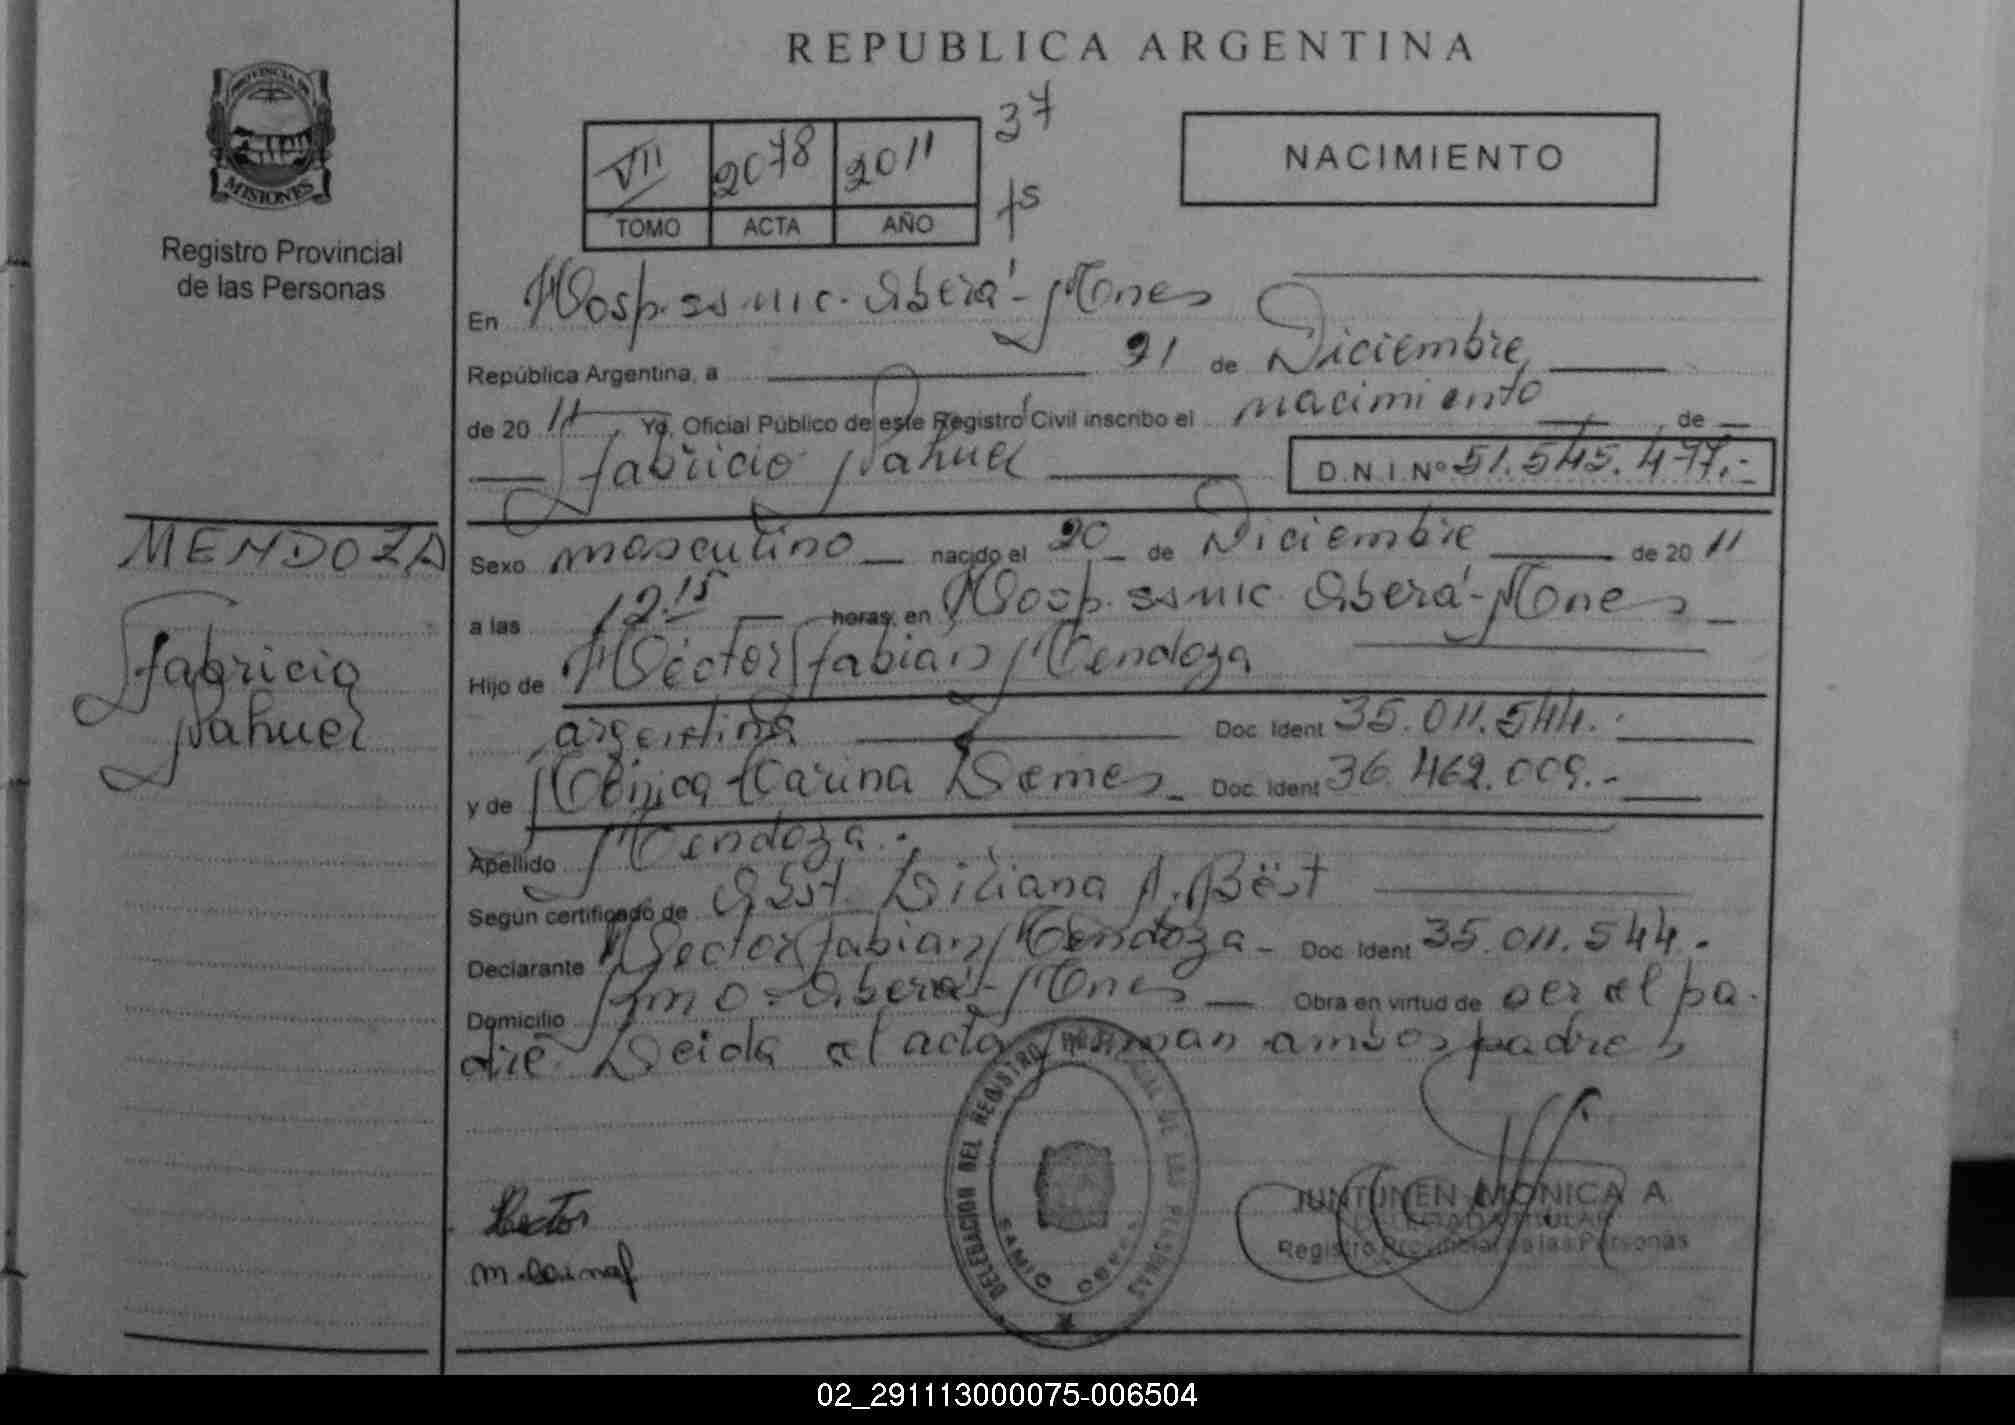 REPUBLICA ARGENTINA
PROVINCIA DE
MISIONES
Registro Provincial
de las Personas
VII 2078 2011 37
TOMO ACTA AÑO fs
NACIMIENTO
En Hosp. ss mic. Oberá - Mnes
República Argentina, a 21 de Diciembre
de 2011 Yo, Oficial Público de este Registro Civil inscribo el nacimiento de
Fabricio Nahuel D.N.I. Nº 51.545.477.-
MENDOZA
Fabricio
Nahuel
Sexo masculino nacido el 20 de Diciembre de 2011
a las 12.15 horas, en Hosp. ss mic. Oberá - Mnes
Hijo de Héctor Fabian Mendoza
argentina Doc. Ident 35.011.544.-
y de Mónica Karina Lemes Doc. Ident 36.462.009.-
Apellido Mendoza.
Según certificado de Obst. Liliana A. Bëst
Declarante Hector Fabian Mendoza - Doc. Ident 35.011.544.
Domicilio Oberá - Mnes Obra en virtud de ser el pa
dre. Leida el acta firman ambos padres
DELEGACION DEL REGISTRO PROVINCIAL DE LAS PERSONAS
Hector
JUNTUNEN MONICA A
DELEGADA TITULAR
Registro Provincial de las Personas
02_291113000075-006504